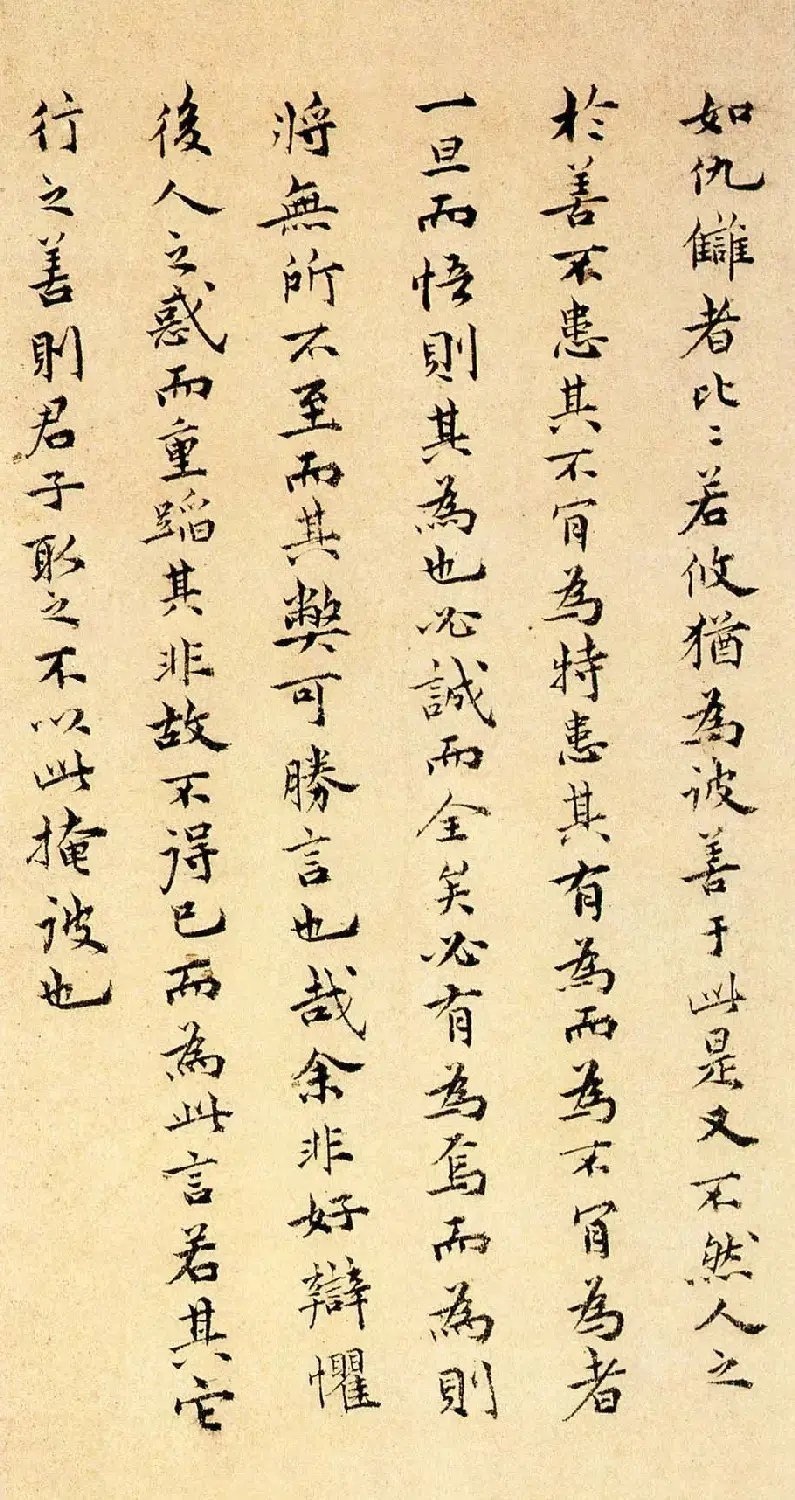 如仇讎者比〻若攸猶為詖善于此是又不然人之
於善不患其不肎為特患其有為而為不肎為者
一旦而悟則其為也必誠而全矣必有為焉而為則
將無所不至而其獘可勝言也哉余非好辯懼
後人之惑而重蹈其非故不得已而為此言若其它
行之善則君子取之不以此掩詖也